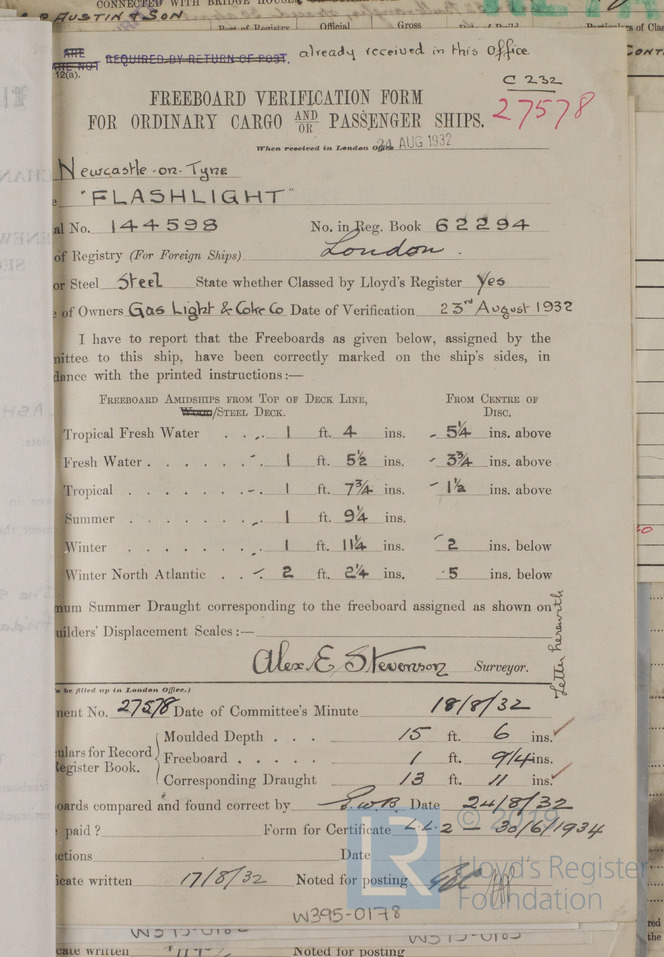 CONNECTED WITH BRIDGE HOUSE
AUSTIN & SON
Port of Registry Official Gross
ARE
ARE NOT REQUIRED BY RETURN OF POST. already received in this office
12(a).
C 232
FREEBOARD VERIFICATION FORM
27578
FOR ORDINARY CARGO AND/OR PASSENGER SHIPS.
When received in London Office 24 AUG 1932
Newcastle-on-Tyne
"FLASHLIGHT"
al No. 144598 No. in Reg. Book 62294
of Registry (For Foreign Ships) London.
or Steel Steel State whether Classed by Lloyd's Register Yes
of Owners Gas Light & Coke Co Date of Verification 23rd August 1932
I have to report that the Freeboards as given below, assigned by the
mittee to this ship, have been correctly marked on the ship's sides, in
dance with the printed instructions:—
FREEBOARD AMIDSHIPS FROM TOP OF DECK LINE, FROM CENTRE OF
WOOD/STEEL DECK. DISC.
Tropical Fresh Water . . . 1 ft. 4 ins. 5¼ ins. above
Fresh Water . . . . . . 1 ft. 5½ ins. 3¾ ins. above
Tropical . . . . . . . 1 ft. 7¾ ins. 1½ ins. above
Summer . . . . . . . 1 ft. 9¼ ins.
Winter . . . . . . . 1 ft. 11¼ ins. 2 ins. below
Winter North Atlantic . . 2 ft. 2¼ ins. 5 ins. below
mum Summer Draught corresponding to the freeboard assigned as shown on
uilders' Displacement Scales:—
Letter herewith
Alex. E. Stevenson Surveyor.
o be filled up in London Office.)
ment No. 27578 Date of Committee's Minute 18/8/32
Moulded Depth . . . 15 ft. 6 ins.
ulars for Record
egister Book.
Freeboard . . . . . 1 ft. 9¼ ins.
Corresponding Draught 13 ft. 11 ins.
oards compared and found correct by G.W.B. Date 24/8/32
paid ? Form for Certificate L.L.2 — 30/6/1934
ctions Date
icate written 17/8/32 Noted for posting
© 2019
LR
Lloyd's Register
Foundation
W395-0178
cate written Noted for posting